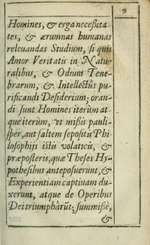 9
Homines, & erga necessita-
tes, & ærumnas humanas
relevandas Studium, si quis
Amor Veritatis in Natu-
ralibus, & Odium Tene-
brarum, & Intellectus pu-
rificandi Desiderium; oran-
di sunt Homines iterum at-
que iterum, ut missis paulis-
per, aut saltem sepositis Phi-
losophiis istis volaticis, &
præposteris, quæ Theses Hy-
pothesibus anteposuerunt, &
Experientiam captivam du-
xerunt, atque de Operibus
Dei triumphârūt; summissè,
&